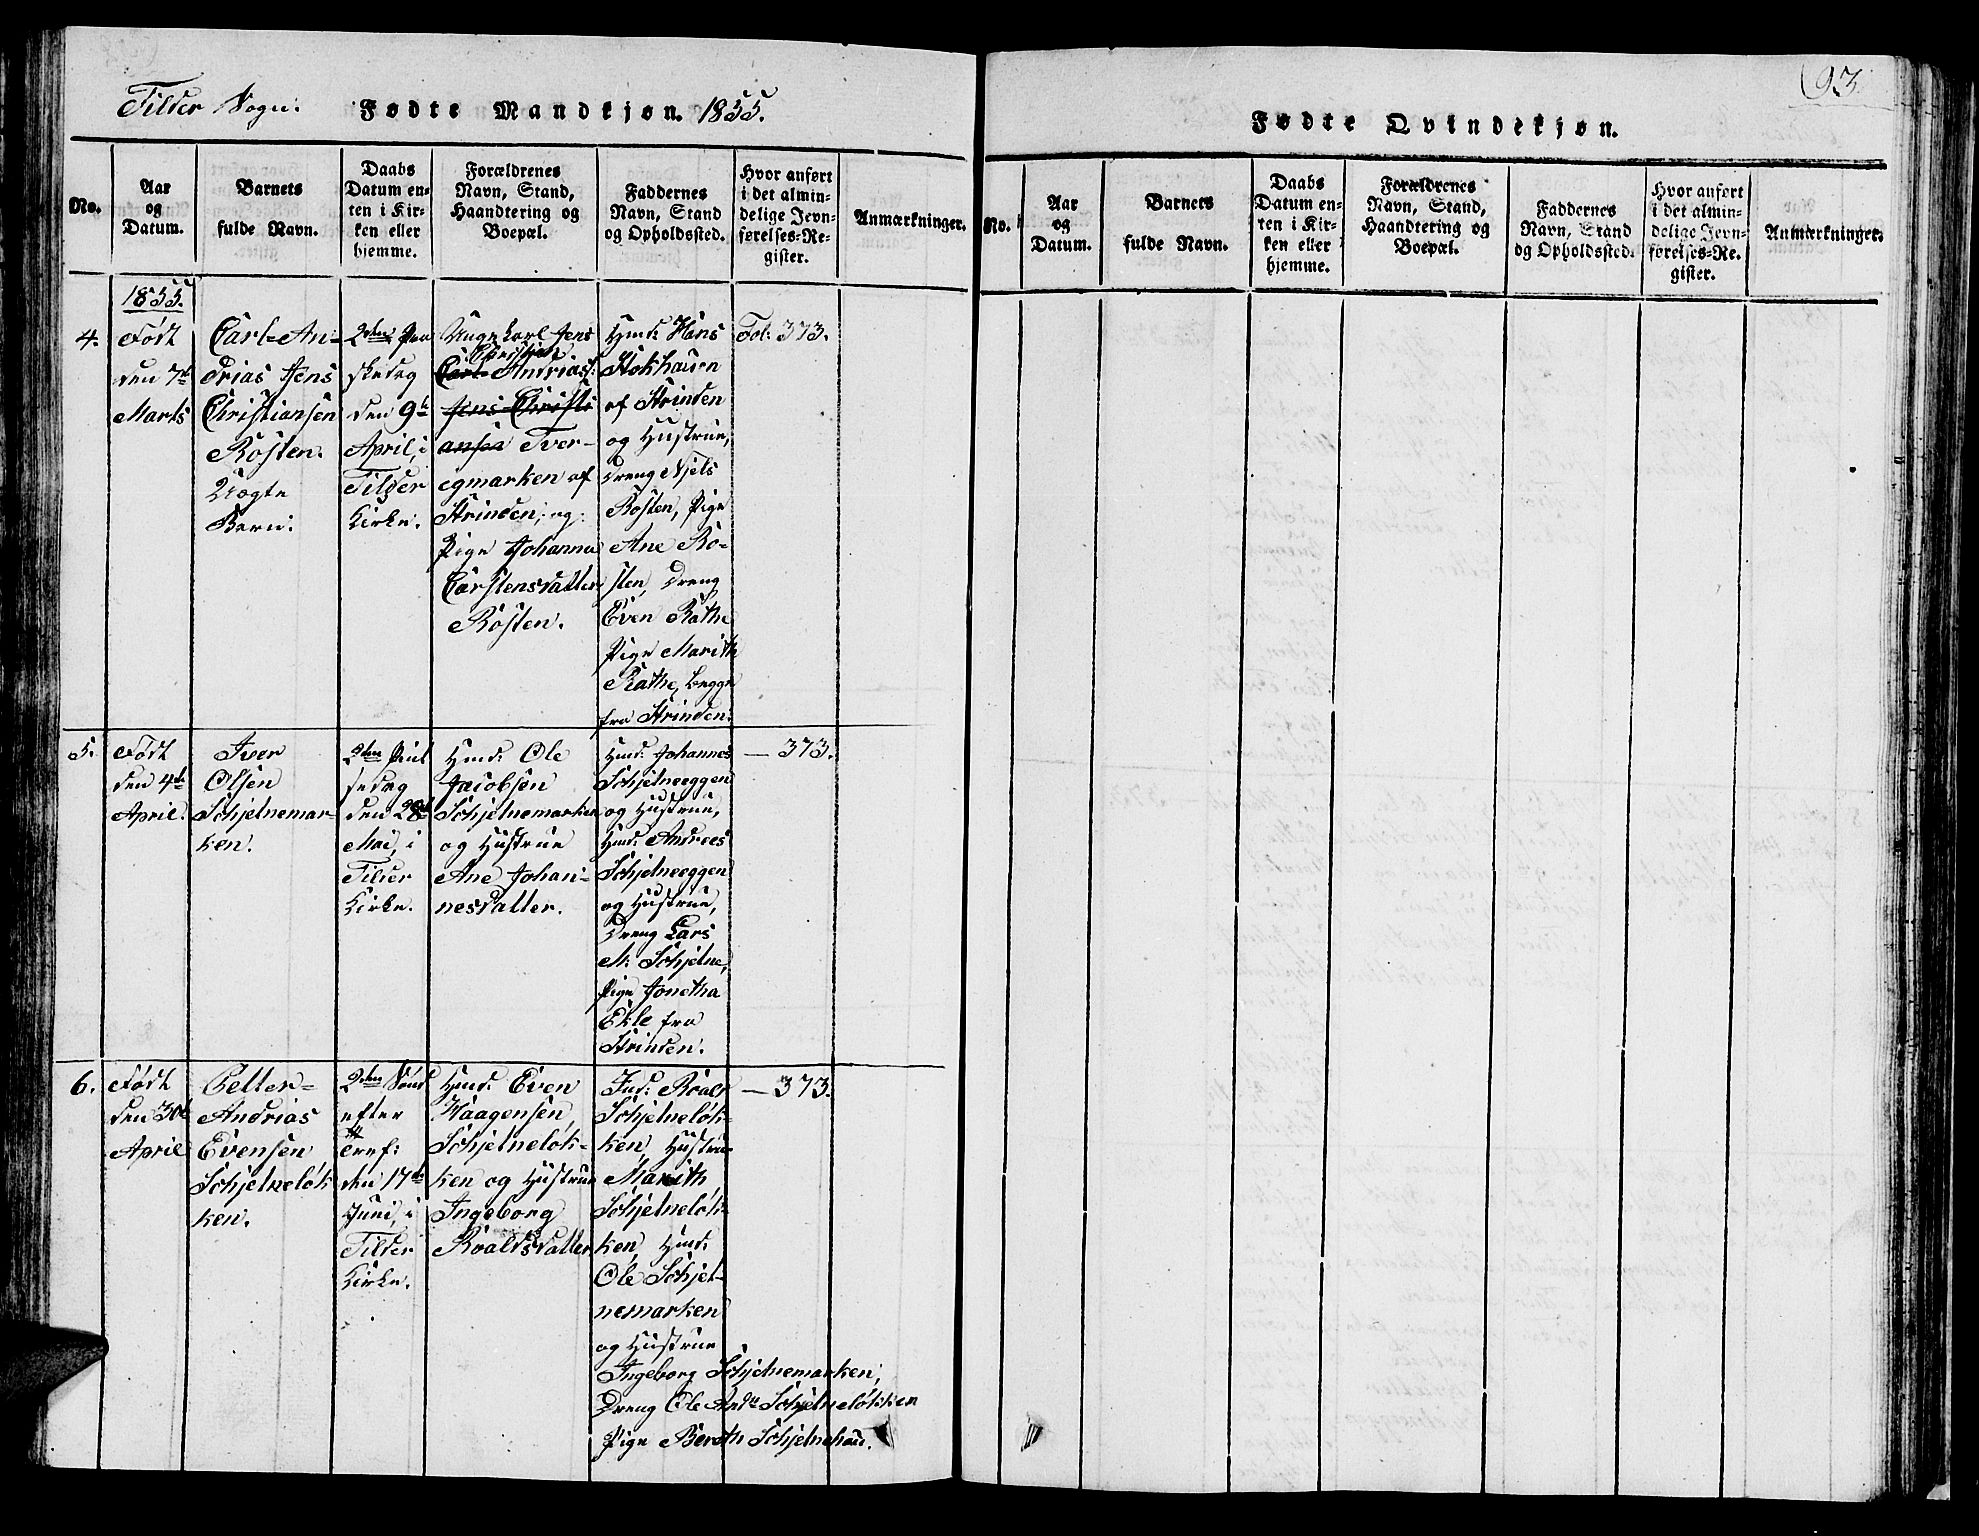 Tilder Sogn: Fødte Mandkjøn. 1855.
No.
Aar
og
Datum.
Barnets
fulde Navn.
Daabs
Datum en-
ten i Kir-
ken eller
hjemme.
Forældrenes
Navn, Stand,
Haandtering og
Boepæl.
Faddernes
Navn, Stand
og Opholdssted.
Hvor anført
i det almin-
delige Jevn-
førelses-Re-
gister.
Anmærkninger.
1855.
4.
Født
den 7de
Marts
Carl An-
drias Jens
Christiansen
Rosten.
Uægte
Barn.
2den Paa
skedag
den 9de
April, i
Tilder
Kirke.
Ungkarl Jens
Christian
Carl Andrias:
Jens Christi
ansen Tver-
egmarken af
Strinden, og
Pige Johanna
Carstensdatter
Rosten.
Hmd: Hans
Stokhaun
af Strinden
og Hustrue,
Dreng Njels
Rosten, Pige
Ane Ro-
sten, Dreng
Even Rathe
Pige Marith
Rathe, begge
fra Strinden.
Fol: 373.
5.
Født
den 4de
April.
Iver
Olsen
Schjelnemar-
ken.
2den Pint
sedag
den 28de
Mai, i
Tilder
Kirke.
Hmd: Ole
Jacobsen
Schjelnemarken
og Hustrue
Ane Johan-
nesdatter.
Hmd: Johannes
Schjelneeggen
og Hustrue,
Hmd: Andreas
Schjelneeggen
og Hustrue,
Dreng Lars
M: Schjelne,
Pige Jonetha
Ekle fra
Strinden.
— 373.
6.
Født
den 30te
April
Petter-
Andrias
Evensen
Schjelneløk
ken.
2den Sønd
efter
Tref:
den 17de
Juni, i
Tilder
Kirke.
Hmd: Even
Haagensen,
Schjelneløk-
ken og Hustrue
Ingeborg
Roaldsdatter
Ind: Roald
Schjelneløk-
ken, Hustrue
Marith
Schjelneløk-
ken, Hmd:
Ole Schjel-
nemarken
og Hustrue
Ingeborg Schjelnemarken,
Dreng Ole Schjelneløkken
Pige Bereth Schjelnehau.
— 373.
93.
Fødte Qvindekjøn.
No.
Aar
og
Datum.
Barnets
fulde Navn.
Daabs
Datum en-
ten i Kir-
ken eller
hjemme.
Forældrenes
Navn, Stand,
Haandtering og
Boepæl.
Faddernes
Navn, Stand
og Opholdssted.
Hvor anført
i det almin-
delige Jevn-
førelses-Re-
gister.
Anmærkninger.